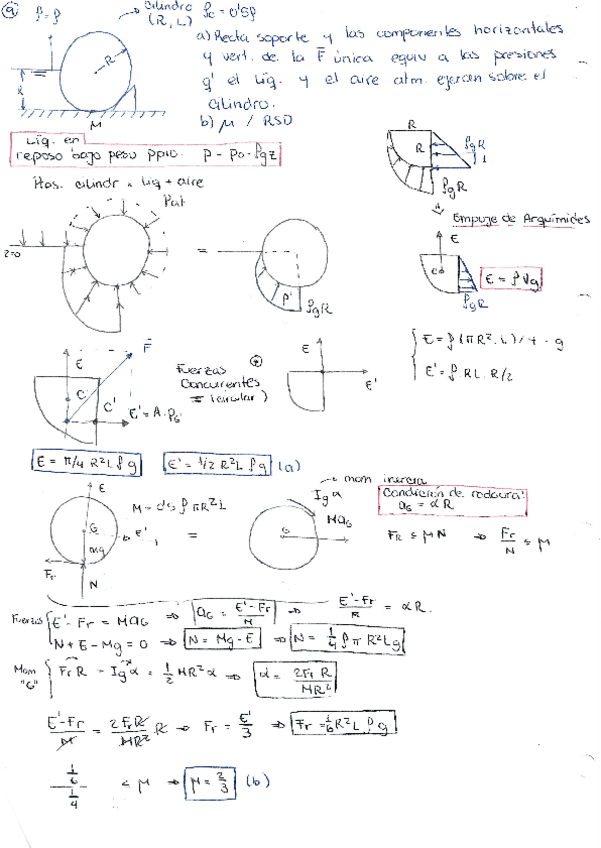 9
ρ=ρ
cilindro (R, L)
ρc = 0'5ρ
a) Recta soporte y las componentes horizontales
y vert. de la F única equiv a las presiones
q' el liq. y el aire atm. ejercen sobre el
cilindro.
b) μ / RSD
R
R
M
Liq. en
reposo bajo peso ppio. P - P0 - ρgz
Pres. cilindr. liq + aire
Pat
z=0
=
P'
ρgR
R
R
ρgR
ρgR
Empuje de Arquímides
E
C
E = ρVg
ρgR
E
F
C
C'
E' = A·PG
Fuerzas
Concurrentes
(circular)
E
E'
E = ρ(πR²·L)/4 · g
E' = ρ RL·R/2
E = π/4 R²Lρg
E' = 1/2 R²Lρg (a)
E
G
mg
E'
Fr
N
M = 0'5ρπR²L
=
mom inercia
IGα
G
MaG
Condición de rodadura:
aG = αR
FR ≤ μN ⇒ Fr/N ≤ μ
Fuerzas
E' - Fr = MaG ⇒ aG = (E' - Fr)/M ⇒ (E' - Fr)/M = αR
N + E - Mg = 0 ⇒ N = Mg - E ⇒ N = 1/4 ρπR²Lg
Mom "G"
FrR - IGα = 1/2 MR²α ⇒ α = 2FrR/MR²
(E' - Fr)/M = 2FrR/MR² R ⇒ Fr = E'/3 ⇒ Fr = 1/6 R²Lρg
1/6 / 1/4 < μ ⇒ μ = 2/3 (b)